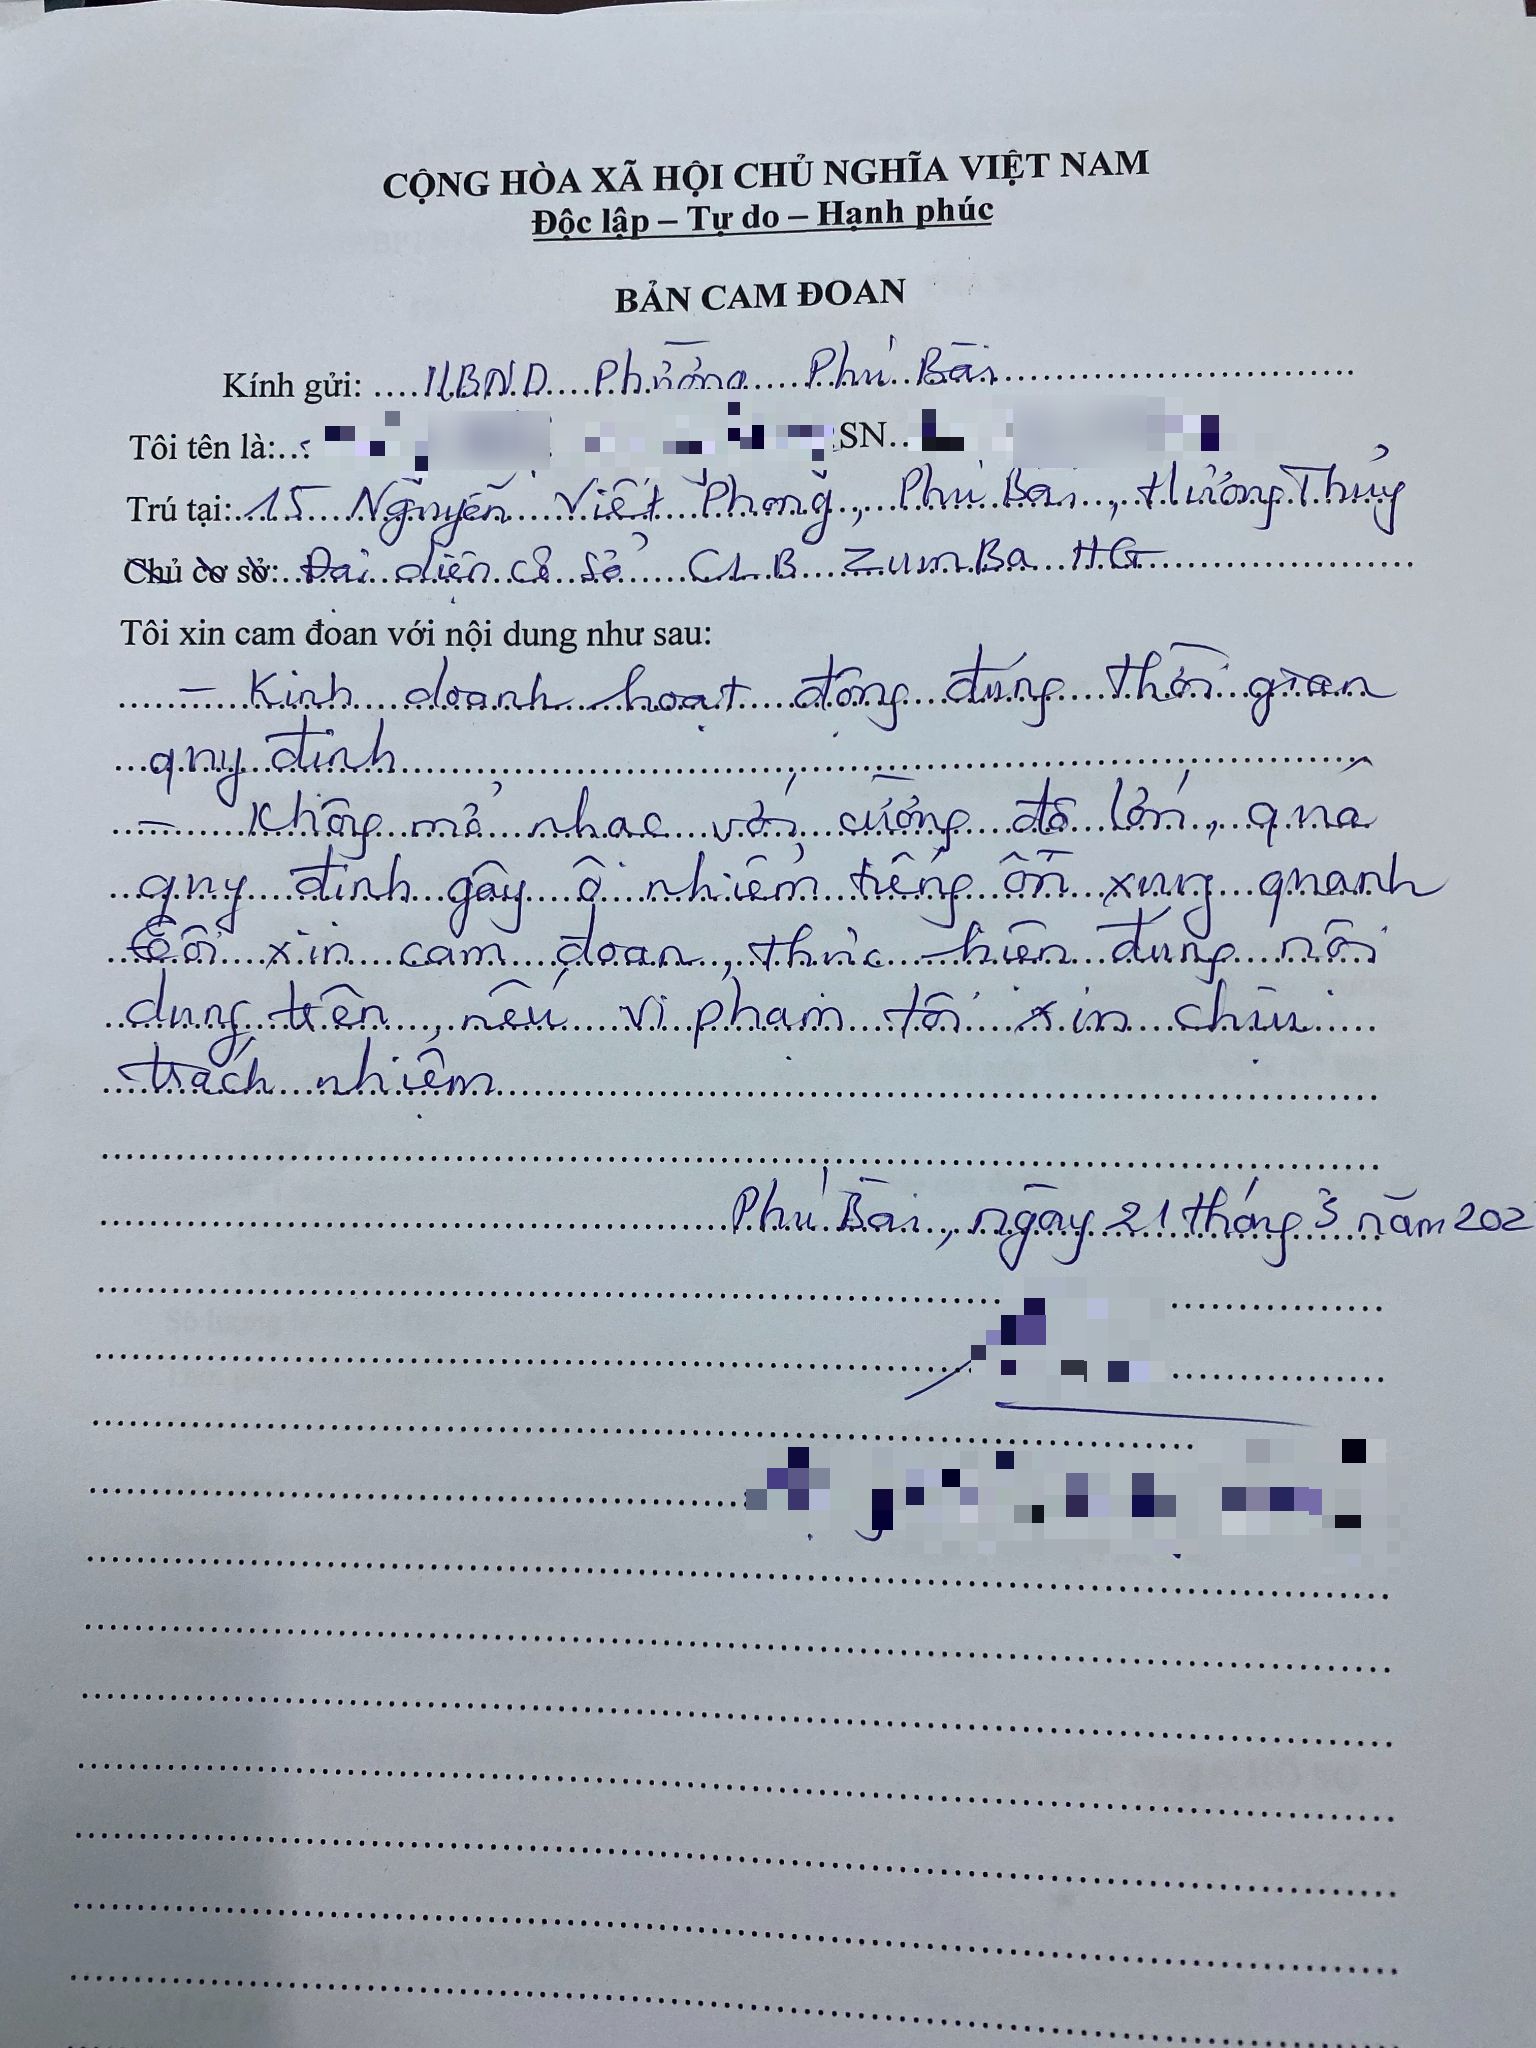 CỘNG HÒA XÃ HỘI CHỦ NGHĨA VIỆT NAM
Độc lập – Tự do – Hạnh phúc
BẢN CAM ĐOAN
Kính gửi: UBND Phường Phú Bài
Tôi tên là: SN
Trú tại: 15 Nguyễn Viết Phong, Phú Bài, Hương Thủy
Chủ cơ sở: Đại diện cơ sở CLB ZumBa HG
Tôi xin cam đoan với nội dung như sau:
– Kinh doanh hoạt động đúng thời gian
quy định
– Không mở nhạc với cường độ lớn, quá
quy định gây ô nhiễm tiếng ồn xung quanh
Tôi xin cam đoan, thực hiện đúng nội
dung trên, nếu vi phạm tôi xin chịu
trách nhiệm
Phú Bài, ngày 21 tháng 3 năm 202